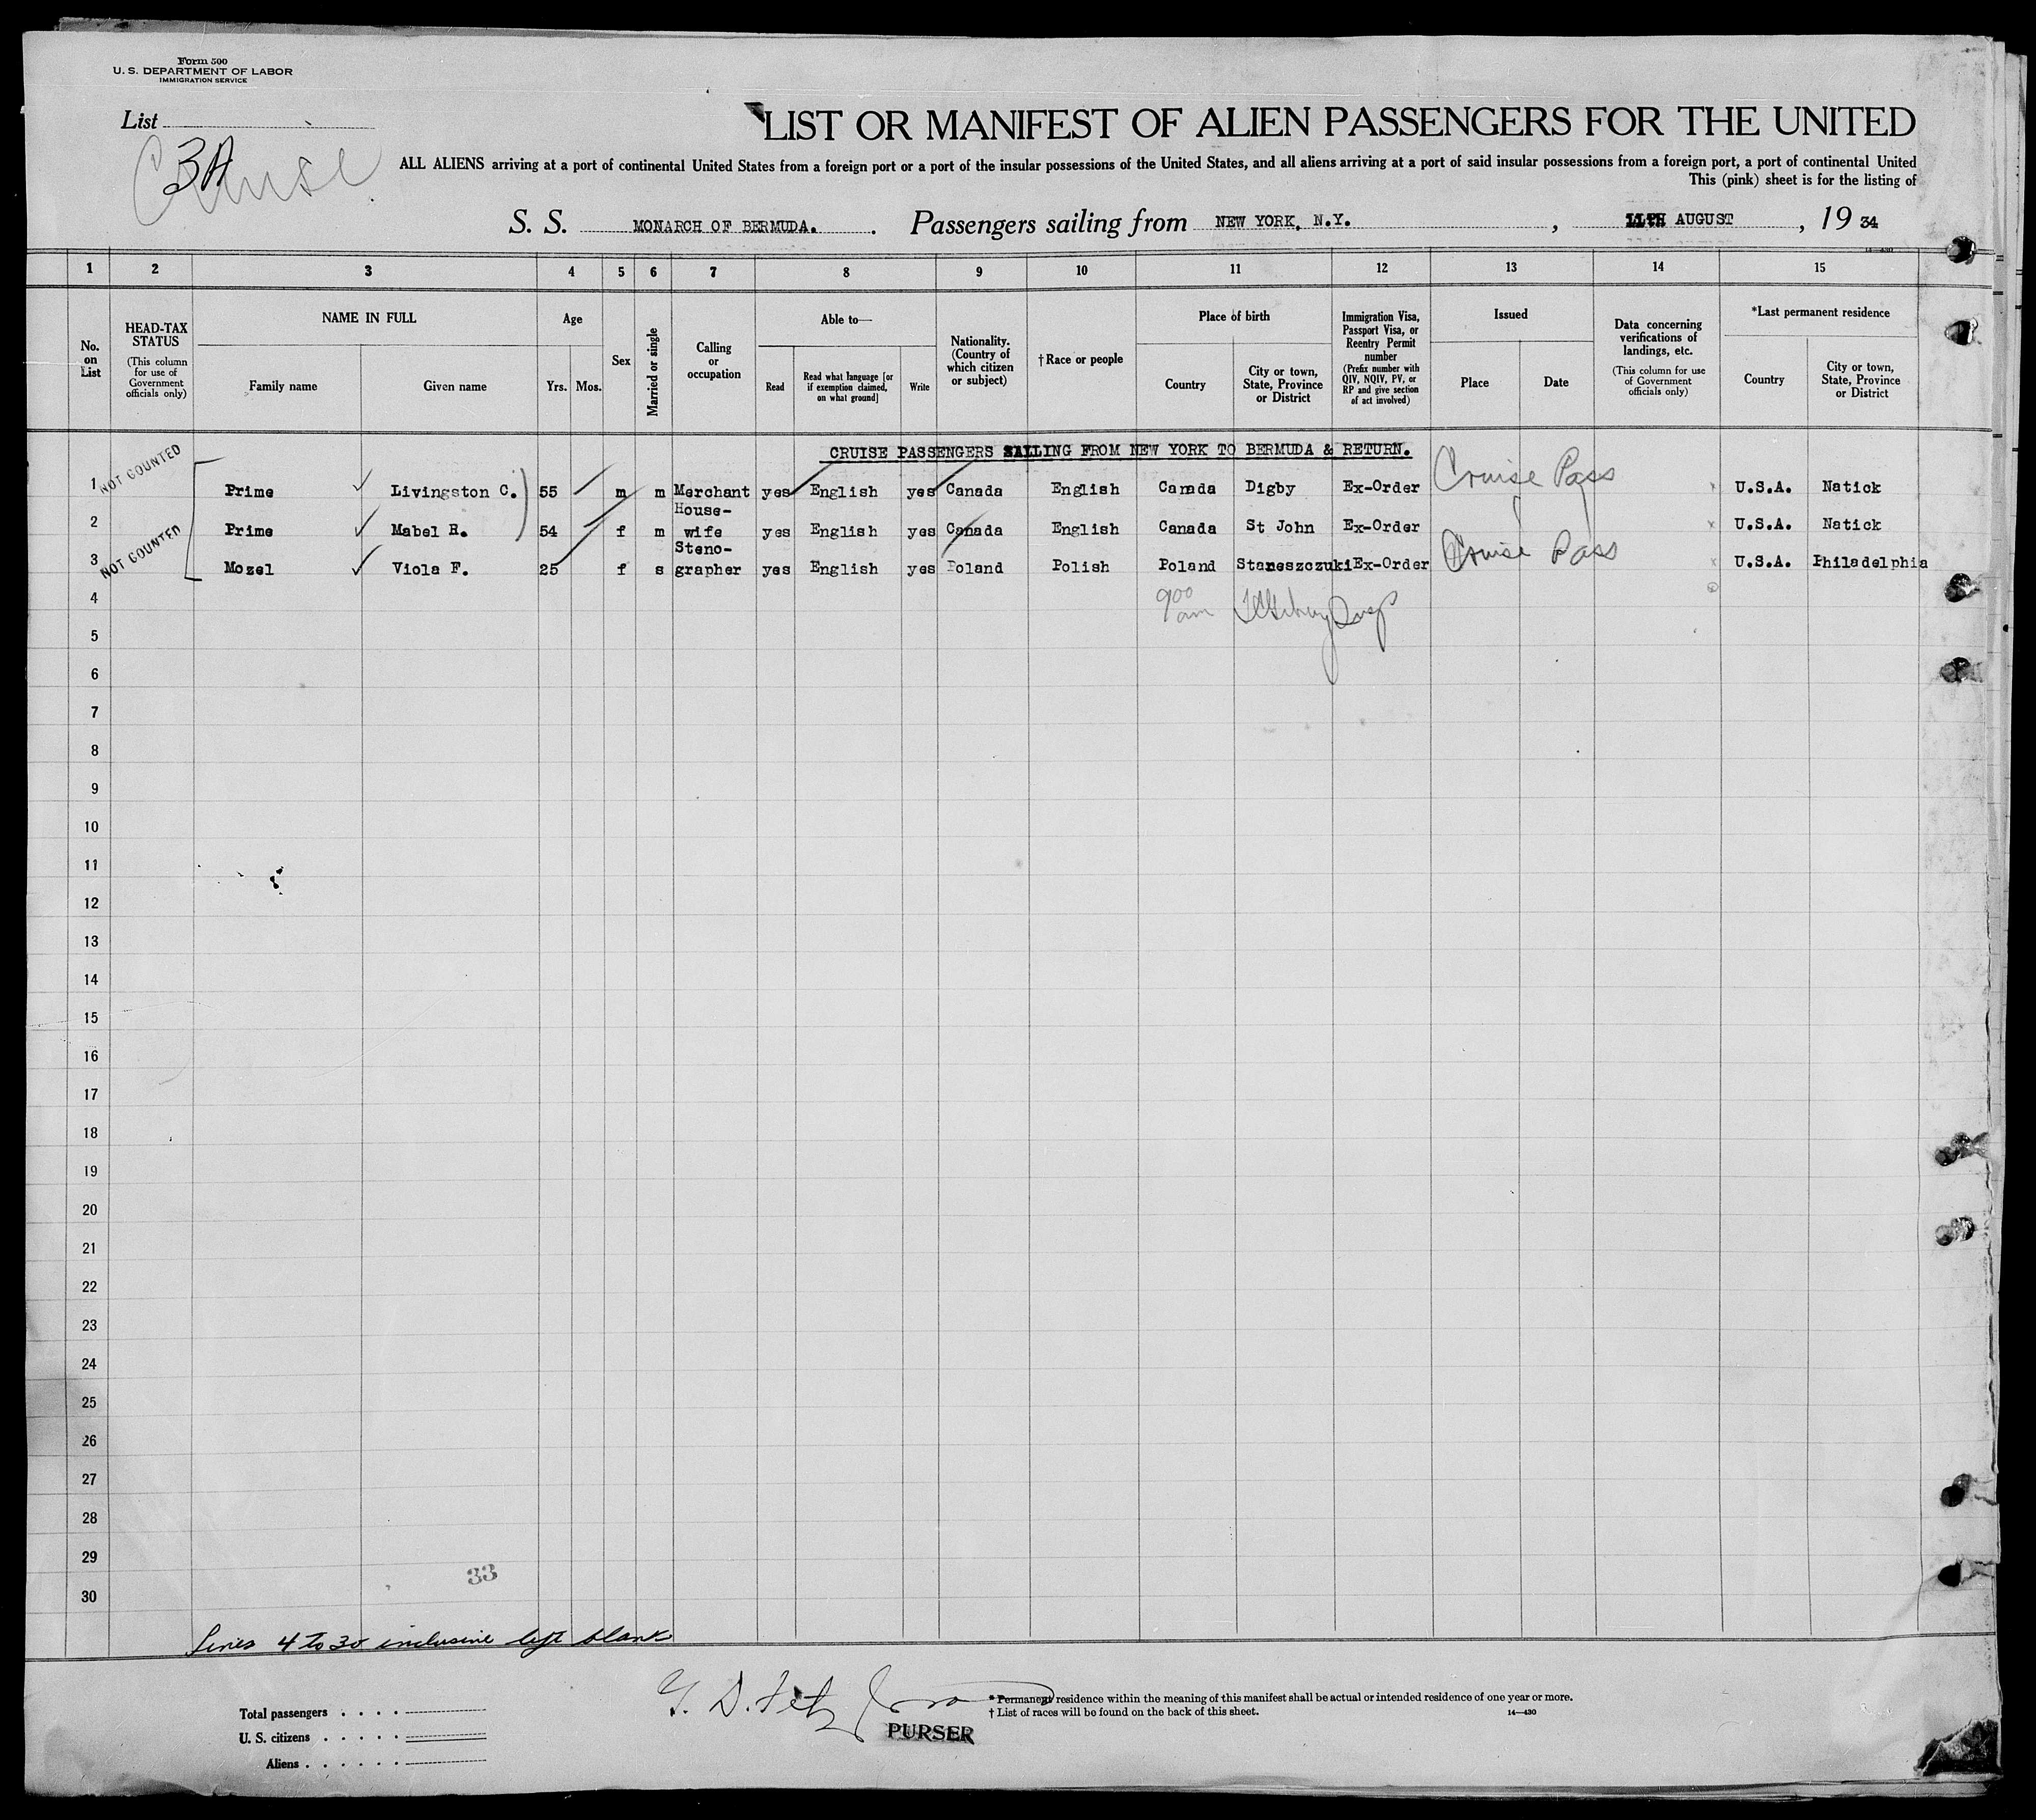 Form 500
U. S. DEPARTMENT OF LABOR
IMMIGRATION SERVICE
List
3A
Cruise
LIST OR MANIFEST OF ALIEN PASSENGERS FOR THE UNITED
ALL ALIENS arriving at a port of continental United States from a foreign port or a port of the insular possessions of the United States, and all aliens arriving at a port of said insular possessions from a foreign port, a port of continental United
This (pink) sheet is for the listing of
S. S. MONARCH OF BERMUDA. Passengers sailing from NEW YORK, N.Y., 11TH AUGUST, 19 34
14—430
1 2 3 4 5 6 7 8 9 10 11 12 13 14 15
No. on List
HEAD-TAX STATUS (This column for use of Government officials only)
NAME IN FULL
Family name Given name
Age
Yrs. Mos.
Sex
Married or single
Calling or occupation
Able to—
Read Read what language [or if exemption claimed, on what ground] Write
Nationality. (Country of which citizen or subject)
†Race or people
Place of birth
Country City or town, State, Province or District
Immigration Visa, Passport Visa, or Reentry Permit number (Prefix number with QIV, NQIV, PV, or RP and give section of act involved)
Issued
Place Date
Data concerning verifications of landings, etc. (This column for use of Government officials only)
*Last permanent residence
Country City or town, State, Province or District
CRUISE PASSENGERS SAILING FROM NEW YORK TO BERMUDA & RETURN.
NOT COUNTED
1 Prime Livingston C. 55 m m Merchant yes English yes Canada English Canada Digby Ex-Order Cruise Pass U.S.A. Natick
2 Prime Mabel R. 54 f m House-wife yes English yes Canada English Canada St John Ex-Order U.S.A. Natick
NOT COUNTED
3 Mozel Viola F. 25 f s Steno-grapher yes English yes Poland Polish Poland Staneszczuki Ex-Order Cruise Pass U.S.A. Philadelphia
4 9 00 am Insp
5
6
7
8
9
10
11
12
13
14
15
16
17
18
19
20
21
22
23
24
25
26
27
28
29
33
30
Lines 4 to 30 inclusive left blank
Total passengers
U. S. citizens
Aliens
G. D. Fitz
PURSER
* Permanent residence within the meaning of this manifest shall be actual or intended residence of one year or more.
† List of races will be found on the back of this sheet.
14—430